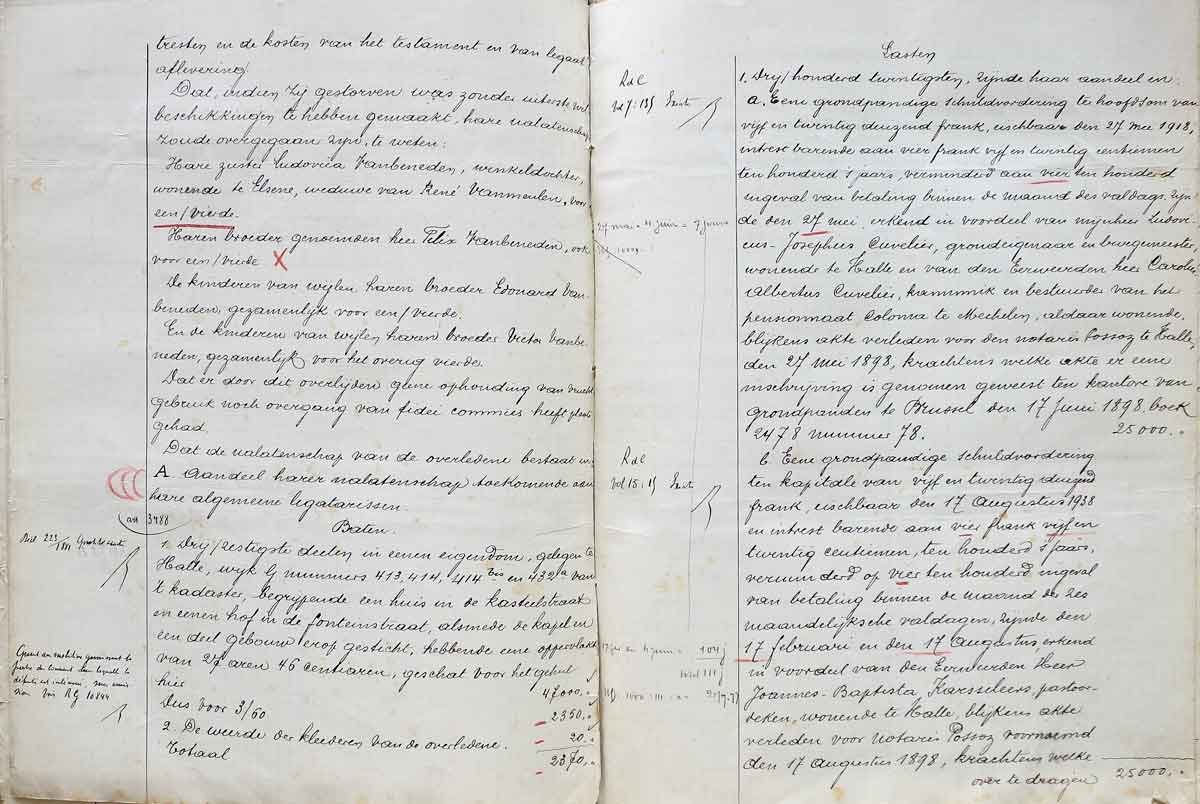 tresten en de kosten van het testament en van legaat
aflevering
Dat, indien zij gestorven was zonder uiterste wil
beschikkingen te hebben gemaakt, hare nalatenschap
zoude overgegaan zyn, te weten:
Hare zuster Ludovica Vanbeneden, winkeldochter,
wonende te Elsene, weduwe van René Vanmeulen, voor
een/vierde.
Haren broeder genoemden heer Felix Vanbeneden, ook
voor een/vierde X
De kinderen van wylen haren broeder Edouard Van-
beneden, gezamenlyk voor een/vierde.
En de kinderen van wylen haren broeder Victor Vanbe-
neden, gezamenlyk voor het overig vierde.
Dat er door dit overlijden gene ophouding van vrucht
gebruik noch overgang van fidei commies heeft plaats
gehad.
Dat de nalatenschap van de overledene bestaat in:
A. Aandeel harer nalatenschap toekomende aan
hare algemeene legatarissen.
art 3488
Baten.
1. Dry/zestigste deelen in eenen eigendom, gelegen te
Halle, wyk G nummers 413, 414, 414 bis en 432a van
't kadaster, begrypende een huis in de kasteelstraat
en eenen hof in de fonteinstraat, alsmede de kapel en
een deel gebouw erop gesticht, hebbende eene oppervlakte
van 27 aren 46 centiaren, geschat voor het geheel
hier 47000.
Dus voor 3/60 2350.
2. De weerde der kleederen van de overledene. 20.
Totaal 2370.
Lasten
RdC
Vol 7: 135
1. Dry/honderd twintigsten, zijnde haar aandeel in:
a. Eene grondpandige schuldvordering te hoofdsom van
vyf en twintig duizend frank, eischbaar den 27 mei 1918,
intrest barende aan vier frank vyf en twintig centiemen
ten honderd 's jaars, verminderd aan vier ten honderd
ingeval van betaling binnen de maand des valdags, zyn-
de den 27 mei, erkend in voordeel van mynheer Ludovi-
cus-Josephus Cuvelier, grondeigenaar en burgemeester,
wonende te Halle en van den Eerweerden heer Carolus
Albertus Cuvelier, kanunnik en bestuurder van het
pensionnaat Coloma te Mechelen, aldaar wonende,
blijkens akte verleden voor den notaris Possoz te Halle,
den 27 Mei 1898, krachtens welke akte er eene
inschrijving is genomen geweest ten kantore van
grondpanden te Brussel den 17 Juni 1898, boek
2478 nummer 78. 25000.
27 mai - 4 juin = 7 jours
RdC
Vol 15: 15
b. Eene grondpandige schuldvordering
ten kapitale van vyf en twintig duizend
frank, eischbaar den 17 Augustus 1938
en intrest barende aan vier frank vyf en
twintig centiemen, ten honderd 's jaars,
verminderd op vier ten honderd ingeval
van betaling binnen de maand der zes
maandelyksche valdagen, zijnde den
17 februari en den 17 Augustus, erkend
in voordeel van den Eerweerden Heer
Joannes-Baptista Karsseleers, pastoor-
deken, wonende te Halle, blykens akte
verleden voor notaris Possoz voornoemd
den 17 Augustus 1898, krachtens welke
over te dragen 25000.